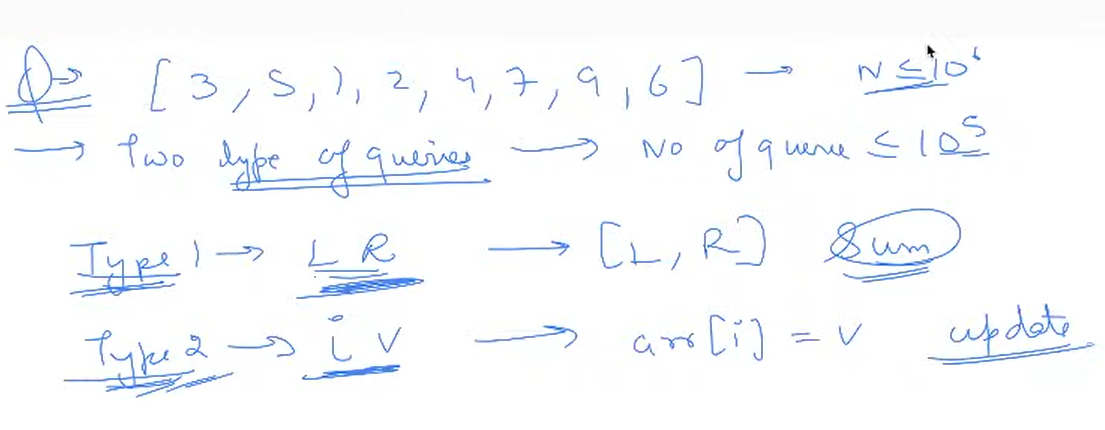 Q→ [3, 5, 1, 2, 4, 7, 9, 6] → N ≤ 10⁶
→ Two type of queries → No of querie ≤ 10⁵
Type 1 → L R → [L, R] Sum
Type 2 → i v → arr[i] = v update